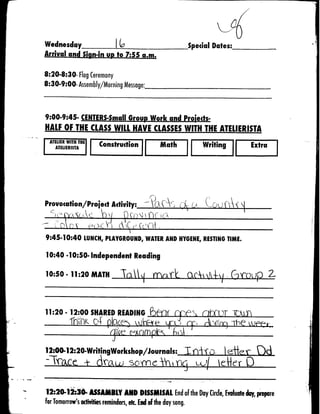 Wednesday 16 Special Dates:
Arrival and Sign-in up to 7:55 a.m.
8:20-8:30- Flag Ceremony
8:30-9:00- Assembly/Morning Message:
9:00-9:45- CENTERS-Small Group Work and Projects-
HALF OF THE CLASS WILL HAVE CLASSES WITH THE ATELIERISTA
ATELIER WITH THE ATELIERISTA Construction Math Writing Extra
Provocation/Project Activity: - Parts of a Country
Separate by Provincia
- Color each different.
9:45-10:40 LUNCH, PLAYGROUND, WATER AND HYGENE, RESTING TIME.
10:40 -10:50- Independent Reading
10:50 - 11:20 MATH Tally mark activity Group 2
11:20 - 12:00 SHARED READING Bear goes about town
Think of places where you go during the week.
give examples
12:00-12:20-WritingWorkshop/Journals: Intro letter Dd
- Trace + draw something w/ letter D
12:20-12:30- ASSAMBLY AND DISSMISAL End of the Day Circle, Evaluate day, prepare
for Tomorrow's activities reminders, etc. End of the day song.